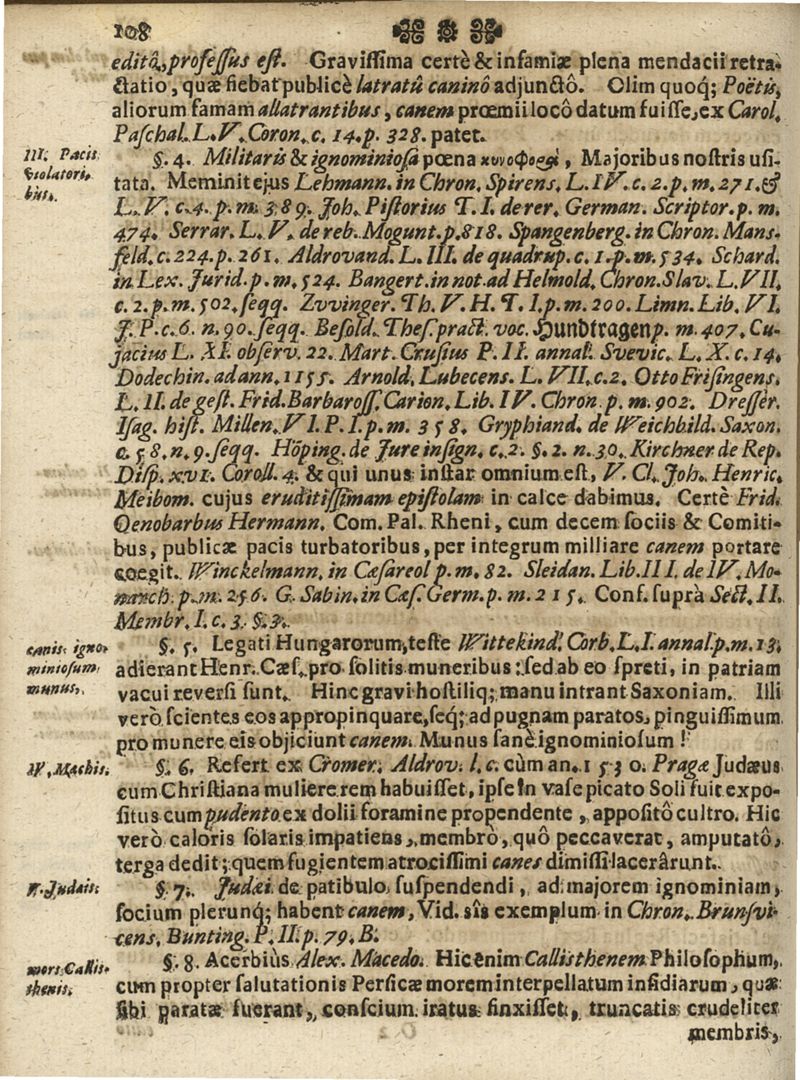 108
editâ, professus est. Gravissima certè & infamiæ plena mendacii retra-
ctatio, quæ fiebat publicè latratû caninô adjunctô. Olim quoq; Poëtis,
aliorum famam allatrantibus, canem prœmii locô datum fuisse, ex Carol.
Paschal. L. V. Coron. c. 14. p. 328. patet.
III. Pacis
violatori-
bus.
§. 4. Militaris & ignominiosa pœna κυνοφορεῖ, Majoribus nostris usi-
tata. Meminit ejus Lehmann. in Chron. Spirens. L. IV. c. 2. p. m. 271. &
L. V. c. 4. p. m. 389. Joh. Pistorius T. I. de rer. German. Scriptor. p. m.
474. Serrar. L. V. de reb. Mogunt. p. 818. Spangenberg. in Chron. Mans-
feld. c. 224. p. 261. Aldrovand. L. III. de quadrup. c. 1. p. m. 534. Schard.
in Lex. Jurid. p. m. 524. Bangert. in not. ad Helmold. Chron. Slav. L. VII.
c. 2. p. m. 502. seqq. Zvvinger. Th. V. H. T. I. p. m. 200. Limn. Lib. VI.
J. P. c. 6. n. 90. seqq. Besold. Thes. pract. voc. Hundtragen p. m. 407. Cu-
jacius L. XI. observ. 22. Mart. Crusius P. II. annal. Svevic. L. X. c. 14.
Dodechin. ad ann. 1155. Arnold. Lubecens. L. VII. c. 2. Otto Frisingens.
L. II. de gest. Frid. Barbaross. Carion. Lib. IV. Chron. p. m. 902. Dresser.
Isag. hist. Millen. VI. P. I. p. m. 358. Gryphiand. de Weichbild. Saxon.
c. 58. n. 9. seqq. Höping. de Jure insign. c. 2. §. 2. n. 30. Kirchner de Rep.
Disp. xvi. Coroll. 4. & qui unus instar omnium est, V. Cl. Joh. Henric.
Meibom. cujus eruditissimam epistolam in calce dabimus. Certè Frid.
Oenobarbus Hermann. Com. Pal. Rheni, cum decem sociis & Comiti-
bus, publicæ pacis turbatoribus, per integrum milliare canem portare
coegit. Winckelmann. in Cæsareol p. m. 82. Sleidan. Lib. III. de IV. Mo-
narch. p. m. 256. G. Sabin. in Cæs. Germ. p. m. 215. Conf. suprà Sect. II.
Membr. I. c. 3. §. 3.
canis igno-
miniosum
munus.
§. 5. Legati Hungarorum, teste Wittekind. Corb. L. I. annal. p. m. 13.
adierant Henr. Cæs. pro solitis muneribus: sed ab eo spreti, in patriam
vacui reversi sunt. Hinc gravi hostiliq; manu intrant Saxoniam. Illi
verò scientes eos appropinquare, seq; ad pugnam paratos, pinguissimum
pro munere eis objiciunt canem. Munus sanè ignominiosum!
IV. Mœchis.
§. 6. Refert ex Cromer. Aldrov. l. c. cùm an. 1530. Pragæ Judæus
cum Christiana muliere rem habuisset, ipse in vase picato Soli fuit expo-
situs cum pudento ex dolii foramine propendente, appositô cultro. Hic
verò caloris solaris impatiens, membrô, quô peccaverat, amputatô,
terga dedit; quem fugientem atrocissimi canes dimissi lacerârunt.
V. Judæis.
§. 7. Judæi de patibulo suspendendi, ad majorem ignominiam,
socium plerunq; habent canem, Vid. sîs exemplum in Chron. Brunsvi-
cens. Bunting. P. II. p. 79. B.
mors Callis-
thenis.
§. 8. Acerbiùs Alex. Macedo. Hic enim Callisthenem Philosophum,
cum propter salutationis Persicæ morem interpellatum insidiarum, quæ
sibi paratæ fuerant, conscium iratus finxisset, truncatis crudeliter
membris,